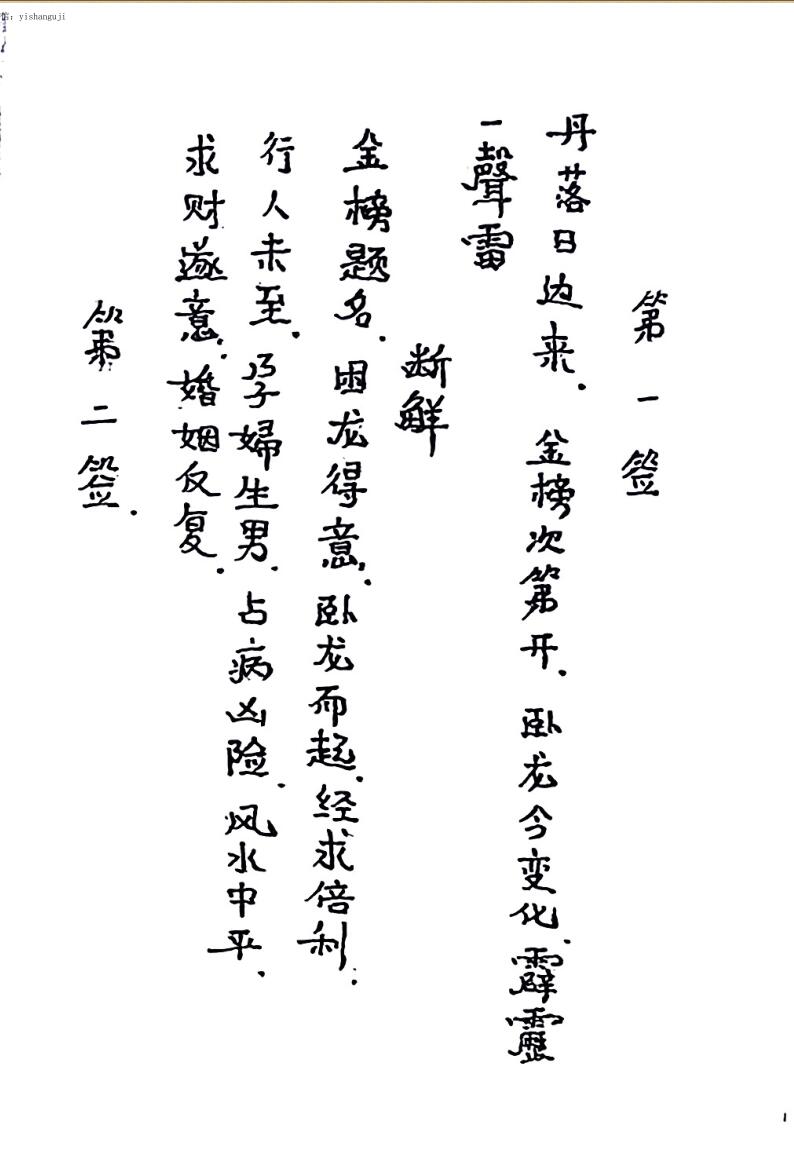 信：yishanguji
第一签
丹落日边来．金榜次第开．卧龙今变化．霹靂
一聲雷
断解
金榜题名．困龙得意．卧龙而起．经求倍利．
行人未至．孕婦生男．占病凶险．风水中平．
求财遂意．婚姻反复．
第二签．
1